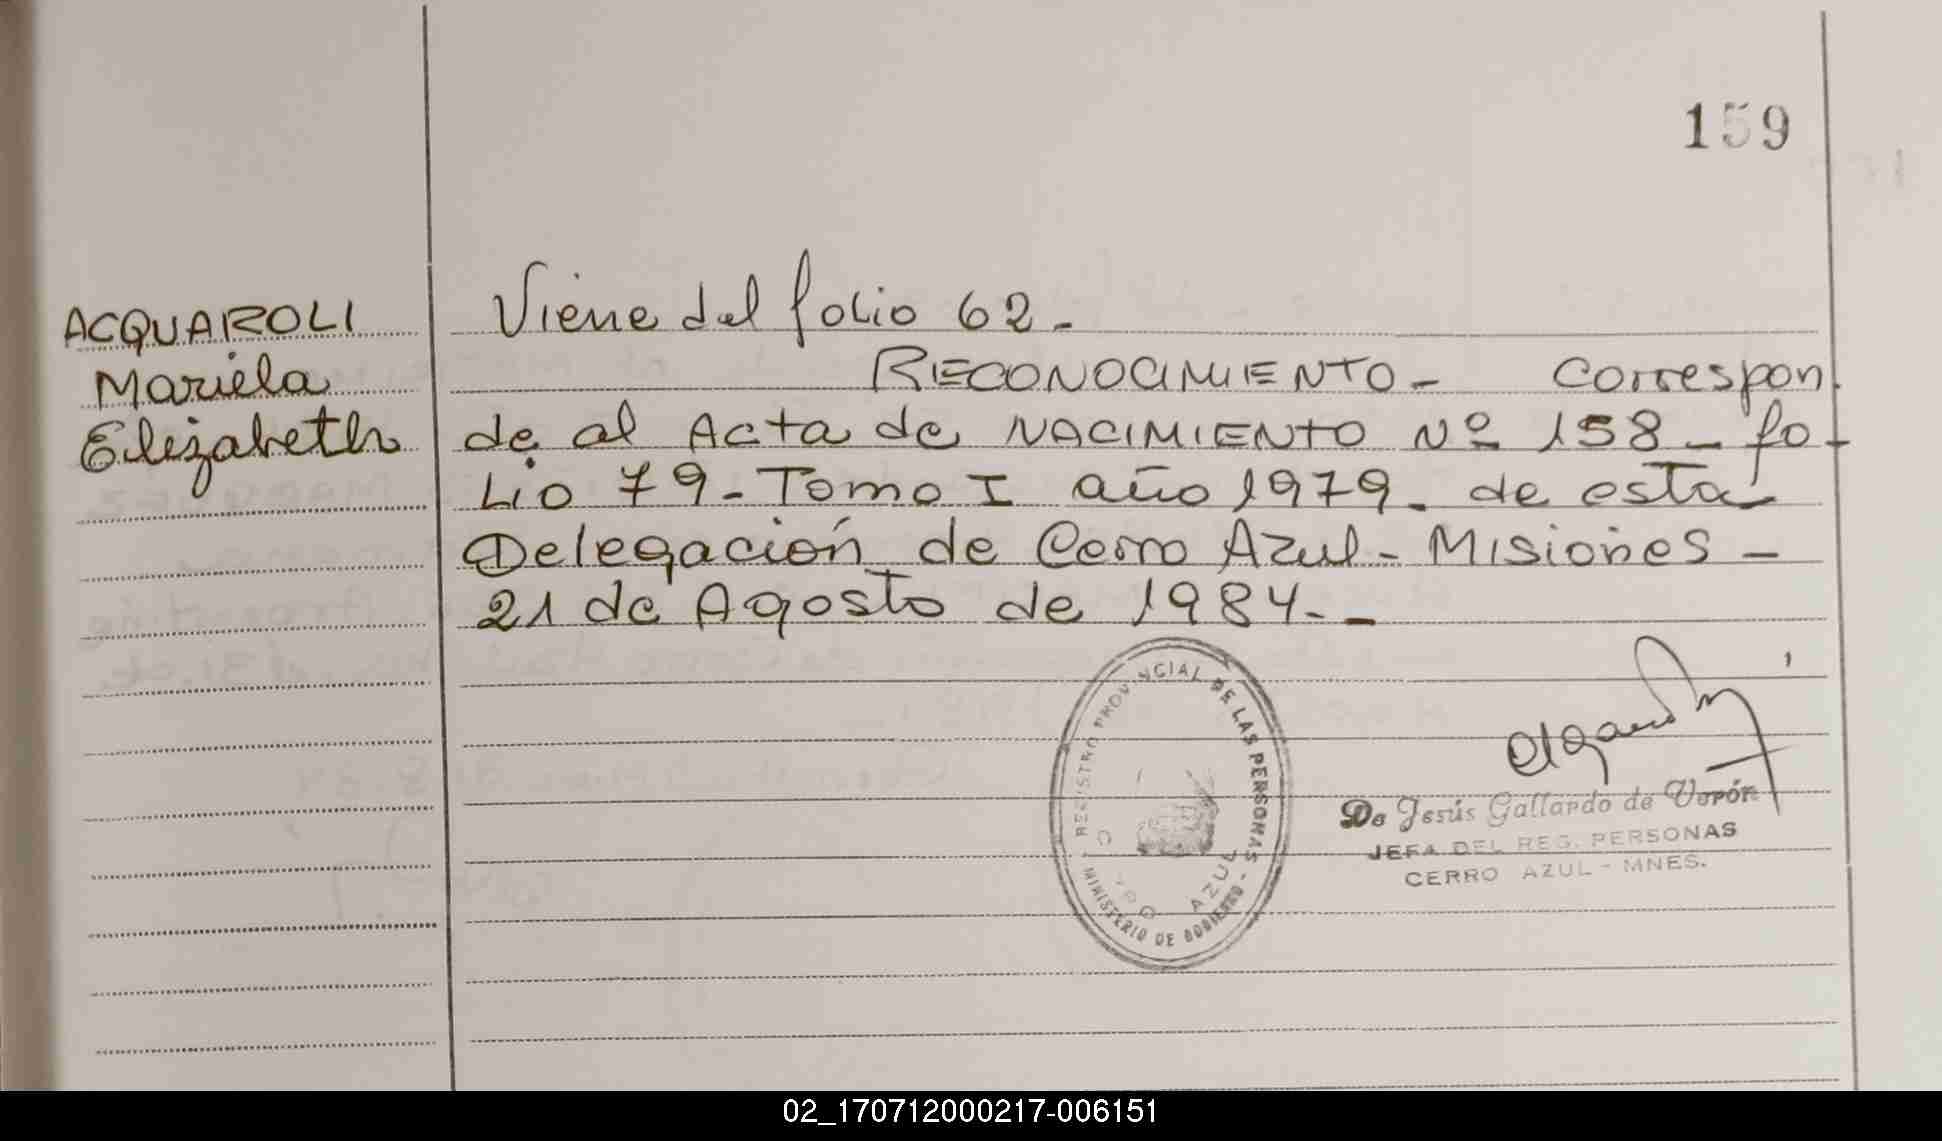 159
ACQUAROLI
Mariela
Elizabeth
Viene del folio 62-
RECONOCIMIENTO- Correspon
de al Acta de NACIMIENTO Nº 158- fo-
lio 79- Tomo I año 1979- de esta
Delegación de Cerro Azul- Misiones-
21 de Agosto de 1984.-
REGISTRO PROVINCIAL DE LAS PERSONAS -
MINISTERIO DE GOBIERNO -
AZUL
De Jesús Gallardo de Verón
JEFA DEL REG. PERSONAS
CERRO AZUL - MNES.
02_170712000217-006151